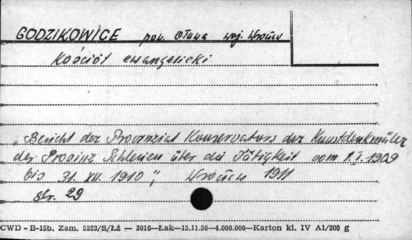 GODZIKOWICE pow. Oława woj. Wrocław
Kościół ewangelicki
„Bericht der Provinzial Konservators der Kunstdenkmäler
der Provinz Schlesien über die Tätigkeit vom 1.I.1909
bis 31.XII.1910", Wrocław 1911
str. 29
CWD - B-15b. Zam. 5323/S/ŁŻ — 3016—Łak—15.11.56—4.000.000—Karton kl. IV A1/200 g